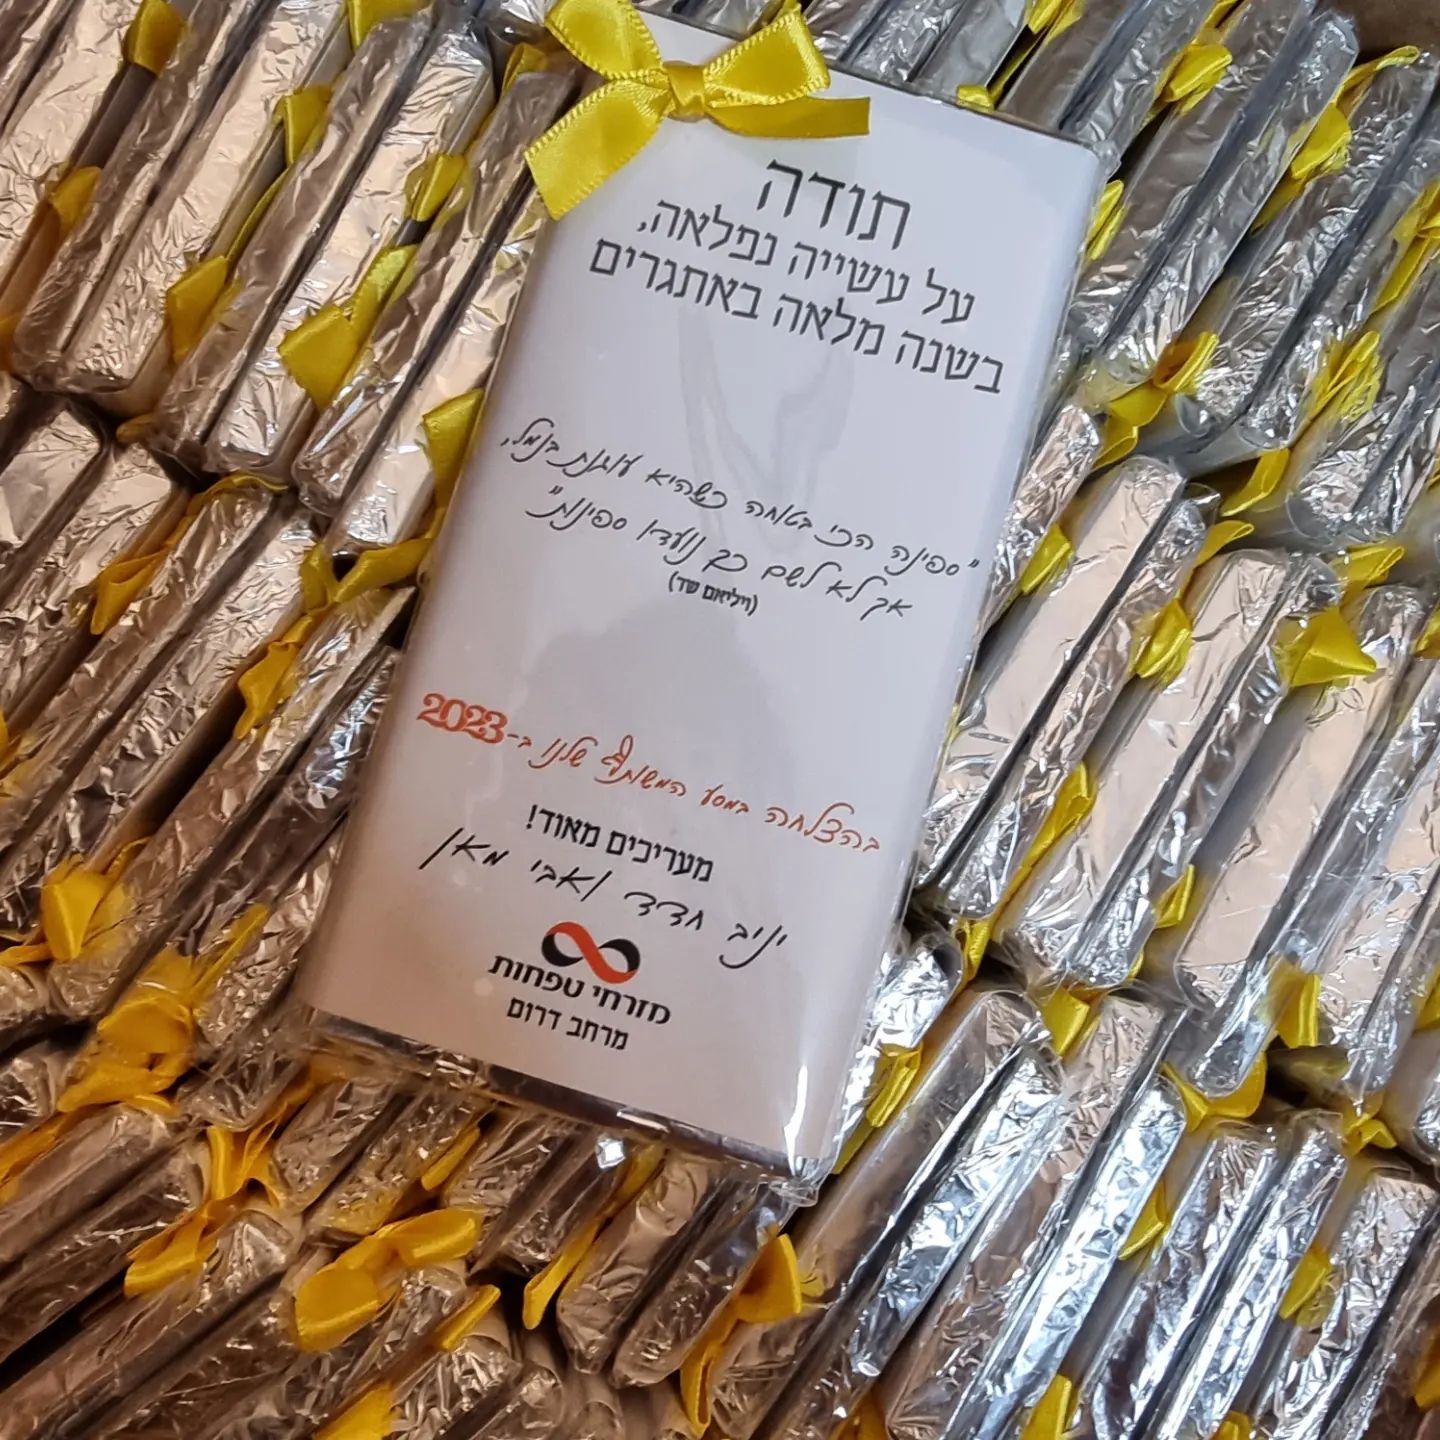 תודה
על עשייה נפלאה,
בשנה מלאה באתגרים
"ספינה הכי בטוחה כשהיא עוגנת בנמל,
אך לא לשם כך נועדו ספינות"
(ויליאם שד)
בהצלחה במסע המשותף שלנו ב-2023
מעריכים מאוד!
יניב חדד ואבי מאן
מזרחי טפחות
מרחב דרום